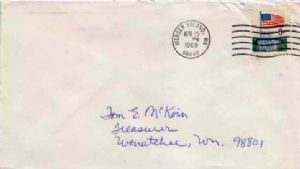 MERCER ISLAND, WA
APR 15
PM
1969
98040
Tom E. McKoin
Treasurer
Wenatchee, Wn. 98801